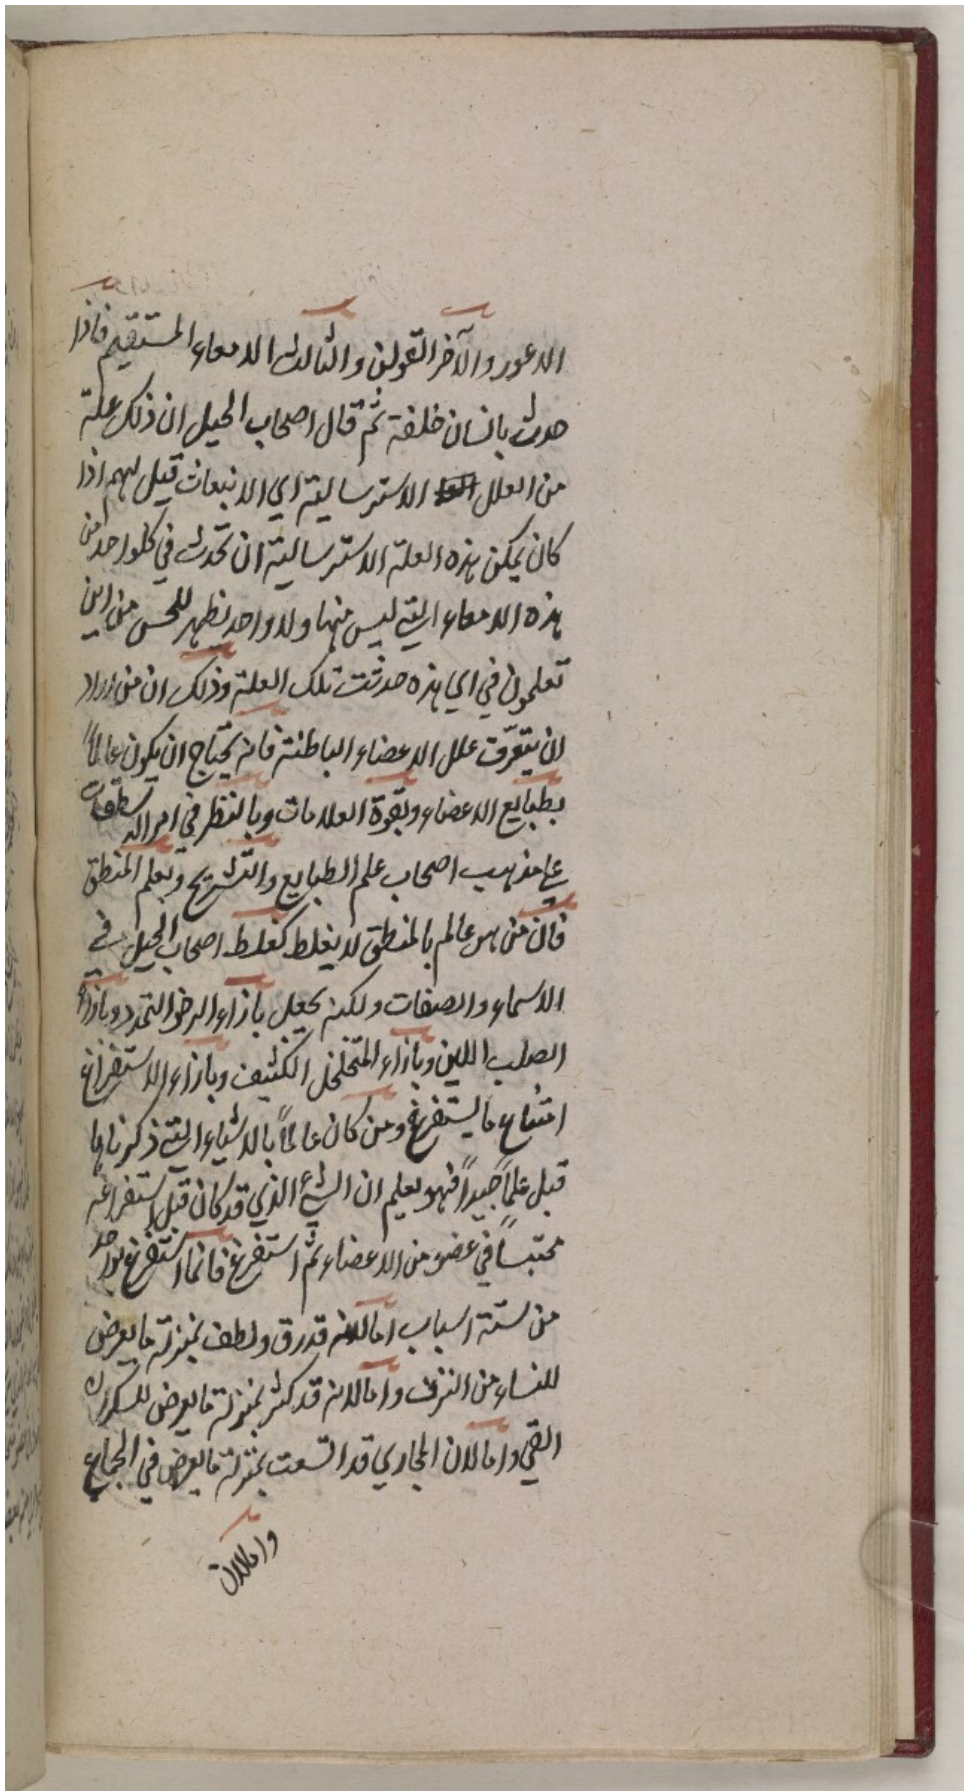 الاعور والآخر القولن والثالث الامعاء المستقيم فاذا
حدث بانسان خلفة ثم قال اصحاب الحيل ان ذلك علة
من العلل الاسترسالية اي الانبعاث قيل لهم اذا
كان يمكن هذه العلة الاسترسالية ان تحدث في كل واحد من
هذه الامعاء التي ليس منها ولا واحد يظهر للحس من اين
تعلمون في اي هذه حدثت تلك العلة وذلك ان من اراد
ان يتعرّف علل الاعضاء الباطنة فانه يحتاج ان يكون عالماً
بطبايع الاعضاء وبقوة العلامات وبالنظر في امر الاسطقسات
علي مذهب اصحاب علم الطبايع والتشريح وبعلم المنطق
فان من هو عالم بالمنطق لا يغلط كغلط اصحاب الحيل في
الاسماء والصفات ولكنه يجعل بازاء الرخو التمدد وبازاء
الصلب اللين وبازاء المتخلخل الكثيف وبازاء الاستفراغ
امتناع ما يستفرغ ومن كان عالماً بالاشياء التي ذكرناها
قبل علماً جيداً فهو يعلم ان الشيء الذي قد كان قبل استفراغه
محتبساً في عضو من الاعضاء ثم استفرغ فانما استفرغ بواحد
من ستة اسباب اما لانه قد رق ولطف بمنزلة ما يعرض
للنساء من النزف واما لانه قد كثر بمنزلة ما يعرض للسكران
القي واما لان المجاري قد اتسعت بمنزلة ما يعرض في الجماع
واما لان